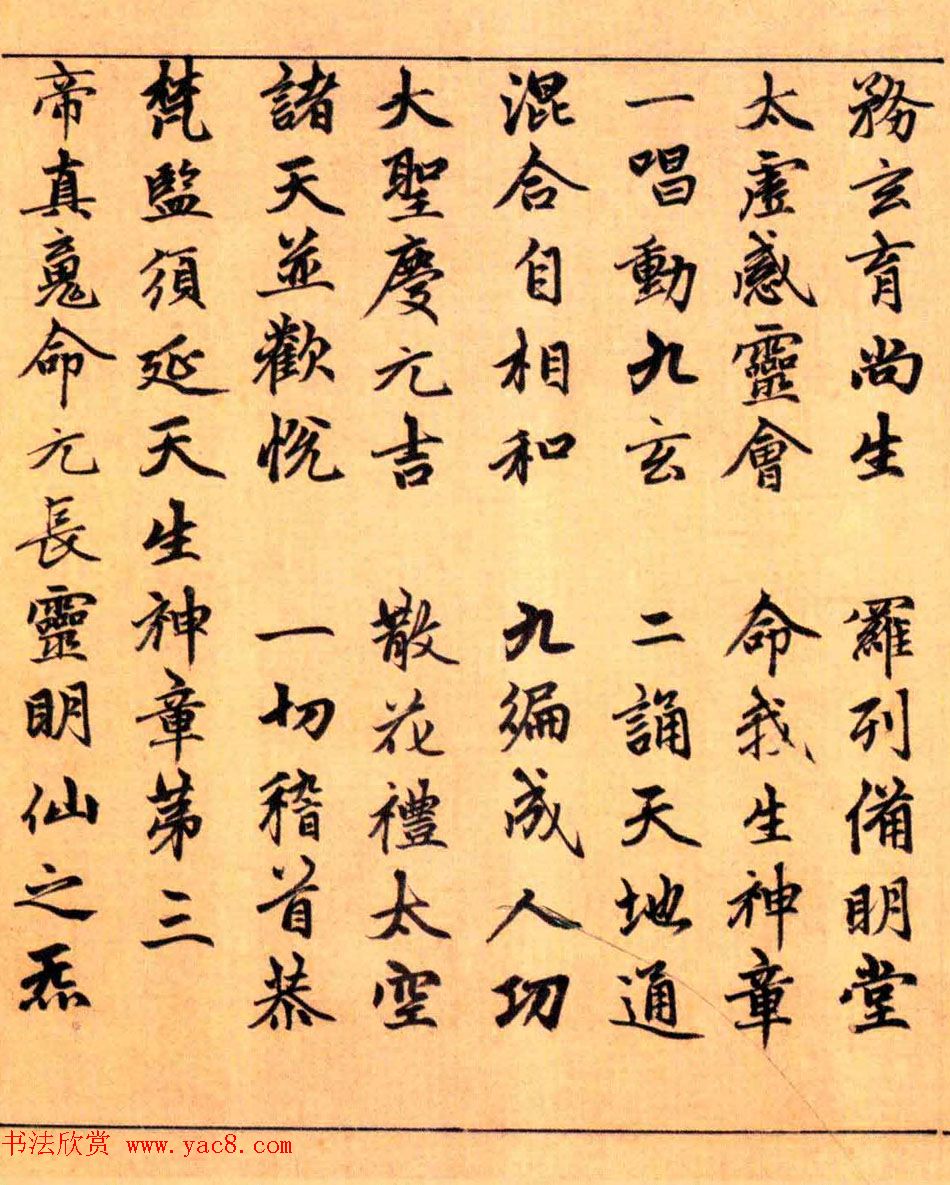 務玄育尚生 羅列備明堂
太虛感靈會 命我生神章
一唱動九玄 二誦天地通
混合自相和 九編成人功
大聖慶元吉 散花禮太空
諸天並歡悅 一切稽首恭
梵監須延天生神章第三
帝真竟命元長靈明仙之炁
书法欣赏 www.yac8.com